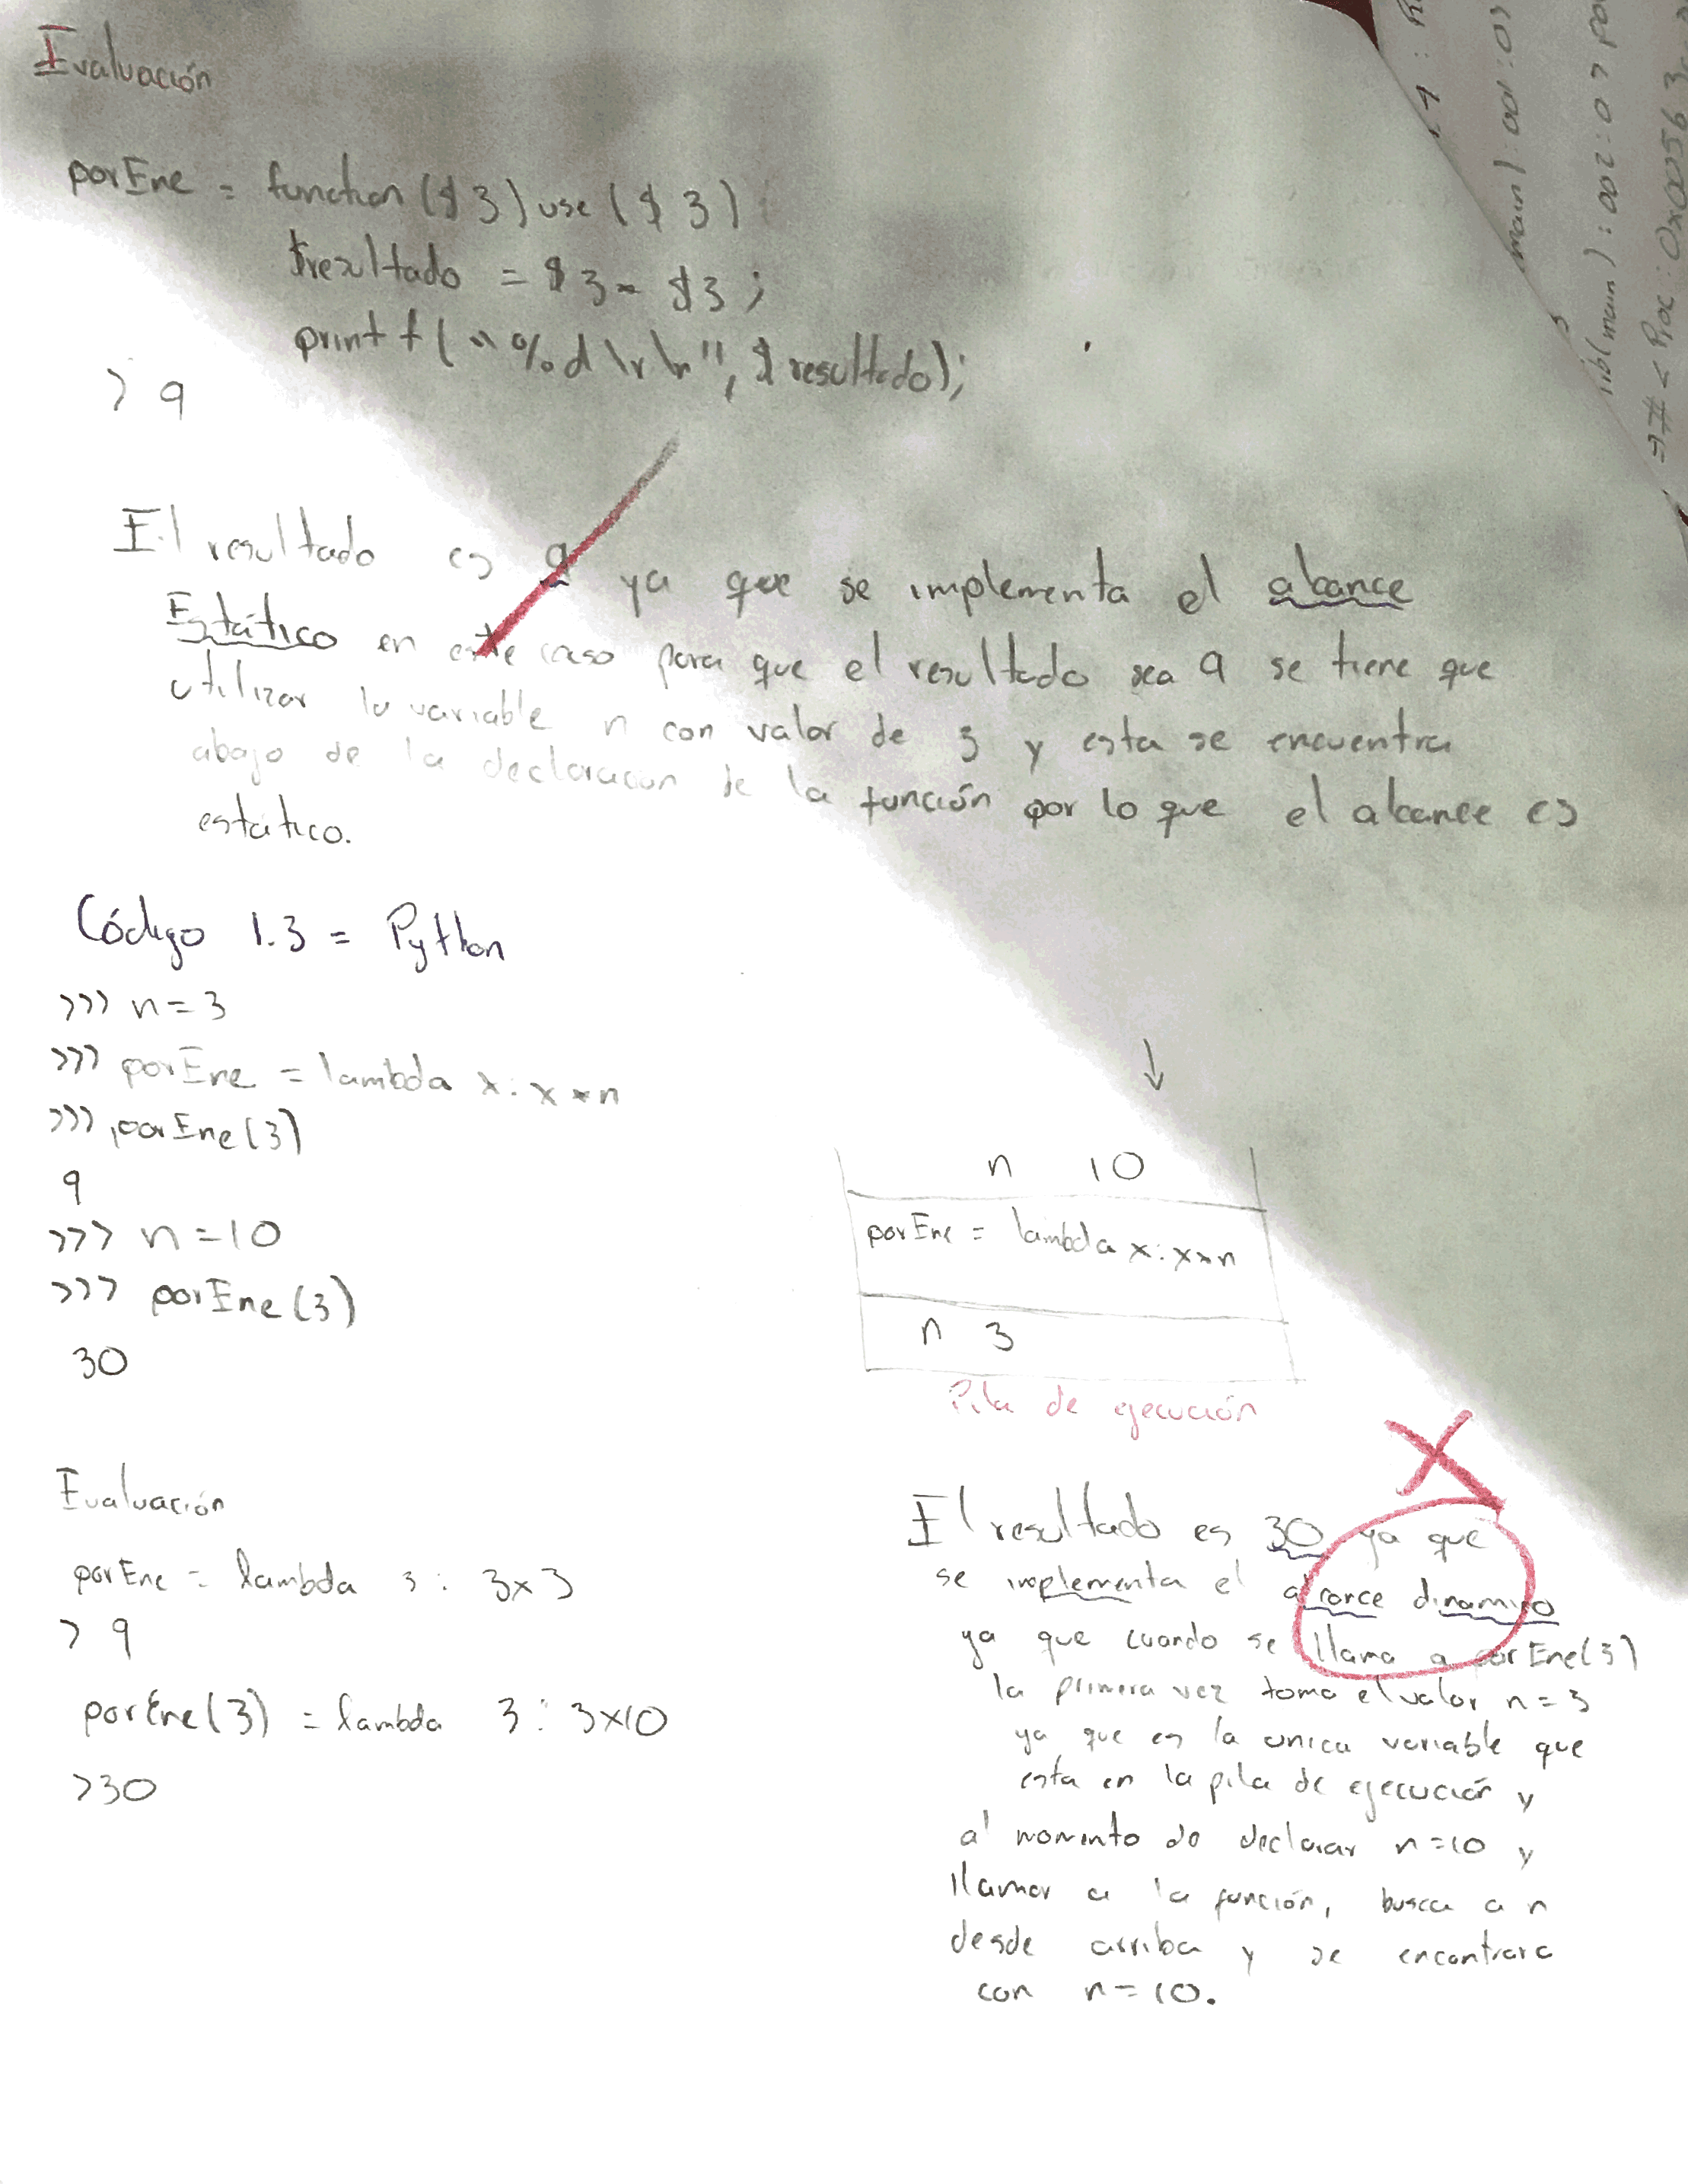 Evaluación
porEne = function($3) use ($3)
$resultado = $3 * $3;
printf("%d\r\n", $resultado);
> 9
El resultado es 9 ya que se implementa el alcance
Estático en este caso para que el resultado sea 9 se tiene que
utilizar la variable n con valor de 3 y esta se encuentra
abajo de la declaracion de la función por lo que el alcance es
estático.
Código 1.3 = Python
>>> n = 3
>>> porEne = lambda x: x * n
>>> porEne(3)
9
>>> n = 10
>>> porEne(3)
30
n 10
porEne = lambda x: x*n
n 3
Pila de ejecución
Evaluación
porEne = lambda 3 : 3x3
> 9
porEne(3) = lambda 3 : 3x10
>30
El resultado es 30 ya que
se implementa el alcance dinamico
ya que cuando se llama a porEne(3)
la primera vez toma el valor n = 3
ya que es la unica variable que
esta en la pila de ejecución y
al momento de declarar n=10 y
llamar a la función, busca a n
desde arriba y se encontrara
con n = 10.
main) : 001 : 0>
irb(main) : 002 : 0 >
=> # < Proc : 0x00563